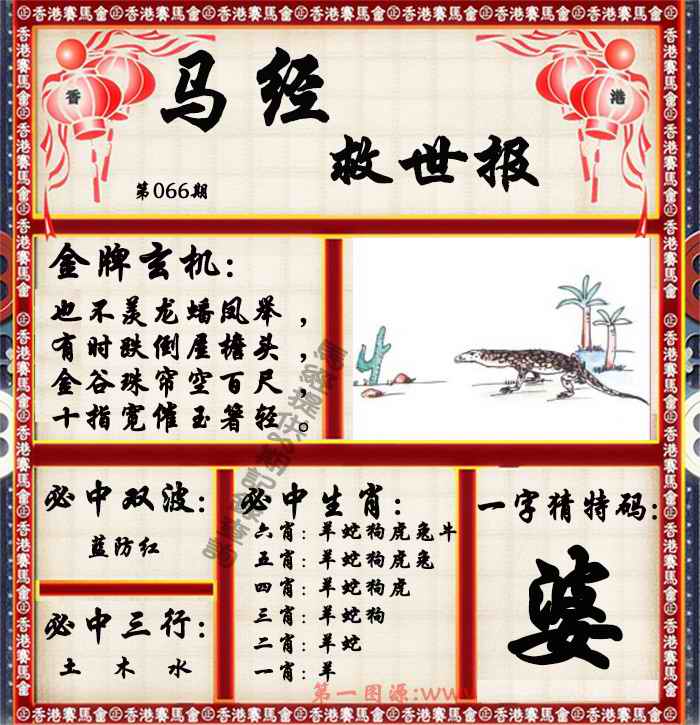 香港賽馬會
香 港
马经
救世报
第066期
金牌玄机:
也不羡龙蟠凤举,
有时跌倒屋檐头,
金谷珠帘空百尺,
十指宽催玉箸轻。
必中双波:
蓝防红
必中三行:
土 木 水
必中生肖:
六肖:羊蛇狗虎兔牛
五肖:羊蛇狗虎兔
四肖:羊蛇狗虎
三肖:羊蛇狗
二肖:羊蛇
一肖:羊
一字猜特码:
婆
第一图源:www